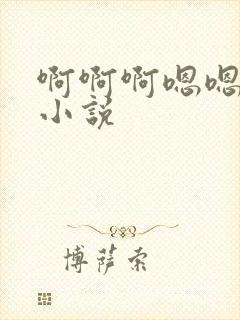 啊啊啊嗯嗯
小说
博萨索